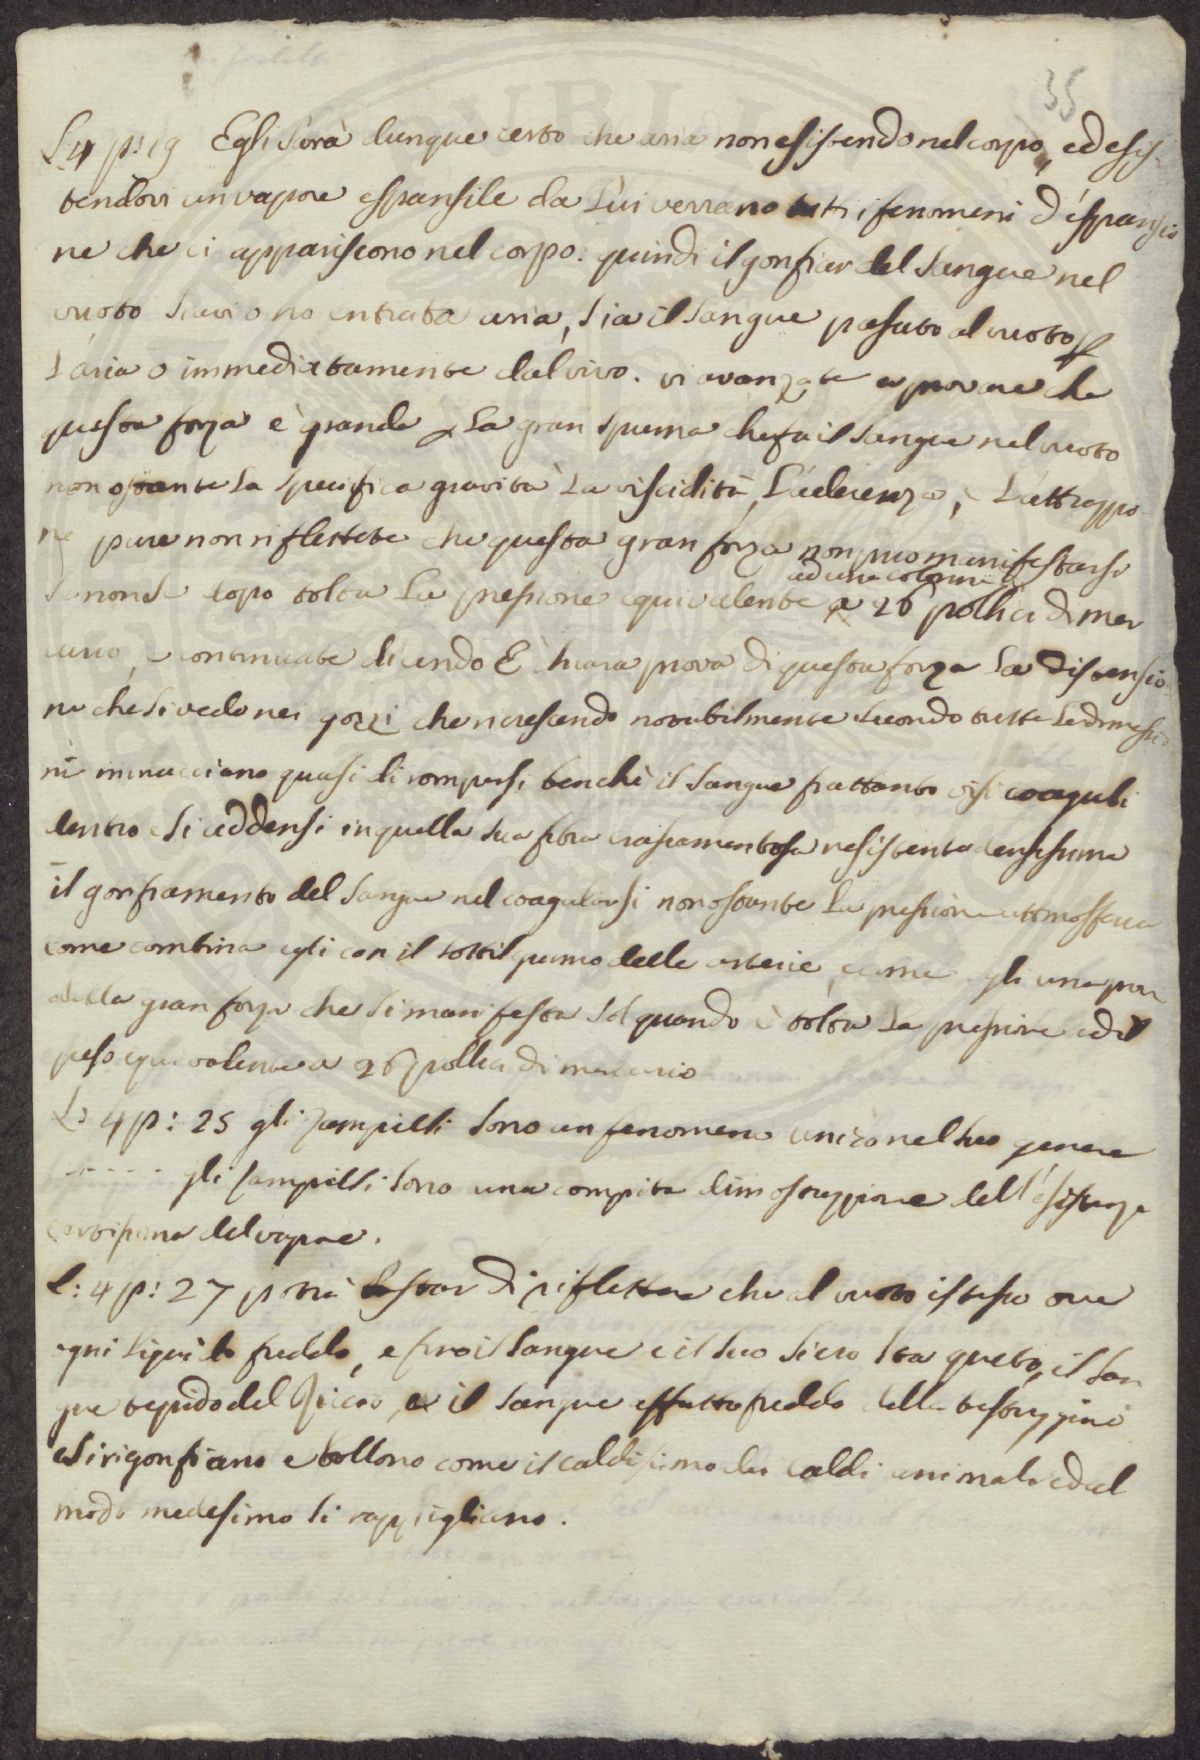 35
L 4 p: 19 Egli sarà dunque certo che aria non esistendo nel corpo, ed esis
tendovi un vapore espansile da lui verrano tutti i fenomeni d'espansio
ne che ci appariscono nel corpo. quindi il gonfiar del sangue nel
vuoto siavi o no entrata aria, sia il sangue passato al vuoto p
l'aria o immediatamente dal vivo. vi avanzate a provare che
questa forza è grande p la gran spuma che fa il sangue nel vuoto
non ostante la specifica gravità la viscidità, l'aderenza, e l'attrazzio
ne pure non riflettete che questa gran forza non puo manifestarsi
ad una colonna
se non se dopo tolta la pressione equivalente a 26 pollici di mer
curio, e continuate dicendo È chiara prova di questa forza la distensio
ne che si vede nei gozzi che ricrescendo notabilmente secondo tutte le dimensio
ni minacciano quasi di rompersi benchè il sangue frattanto visi coaguli
dentro e si addensi in quella sua fibra crassamentosa resistente densissima
il gonfiamento del sangue nel coagularsi nonostante la pressione attmosferica
come combina egli con il sottil grumo delle arterie, e come egli una prova
della gran forza che si manifesta sol quando è tolta la pressione ed il
peso equivalente a 26 pollici di mercurio
L: 4 p: 25 gli zampilli sono un fenomeno unico nel suo genere
- - - - - gli zampilli sono una compita dimostrazzione dell'esistenza
certissima del vapore.
L: 4 p: 27 potrà bastar di riflettere che al vuoto istesso ove
ogni liquido freddo, e fin il sangue e il suo siero sta queto, il san
gue tepido del Riccio, e il sangue affatto freddo della testuggine
si rigonfiano e bollono come il caldissimo dei caldi animali ed al
modo medesimo si rappigliano.